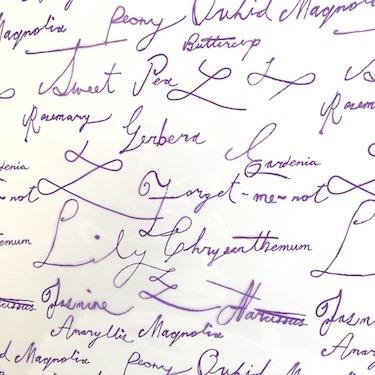 Magnolia Peony Orchid Magnolia
Buttercup
Sweet Pea S
Rosemary Rosem
Gerbera
Gardenia
denia
e-not Forget-me-not
Lily Chrysanthemum L
emum
Jasmine Narcissus Jasmin
Amaryllis Magnolia Amary
d Magnolia Peony Orchid Magnolia